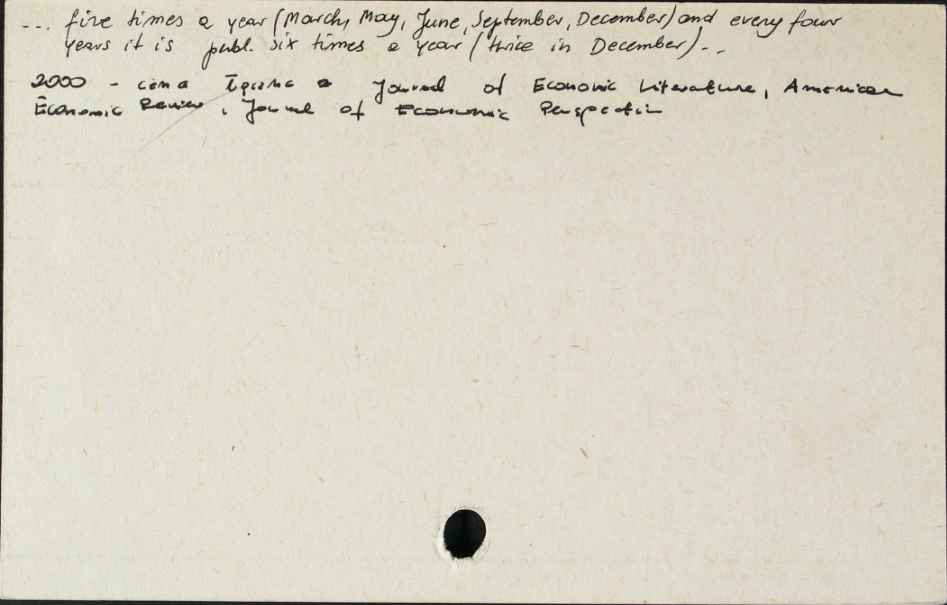 ... five times a year (March, May, June, September, December) and every four
years it is publ. six times a year (twice in December)...
2000 - cena łączna a Journal of Economic Literature, American
Economic Review, Journal of Economic Perspectiv